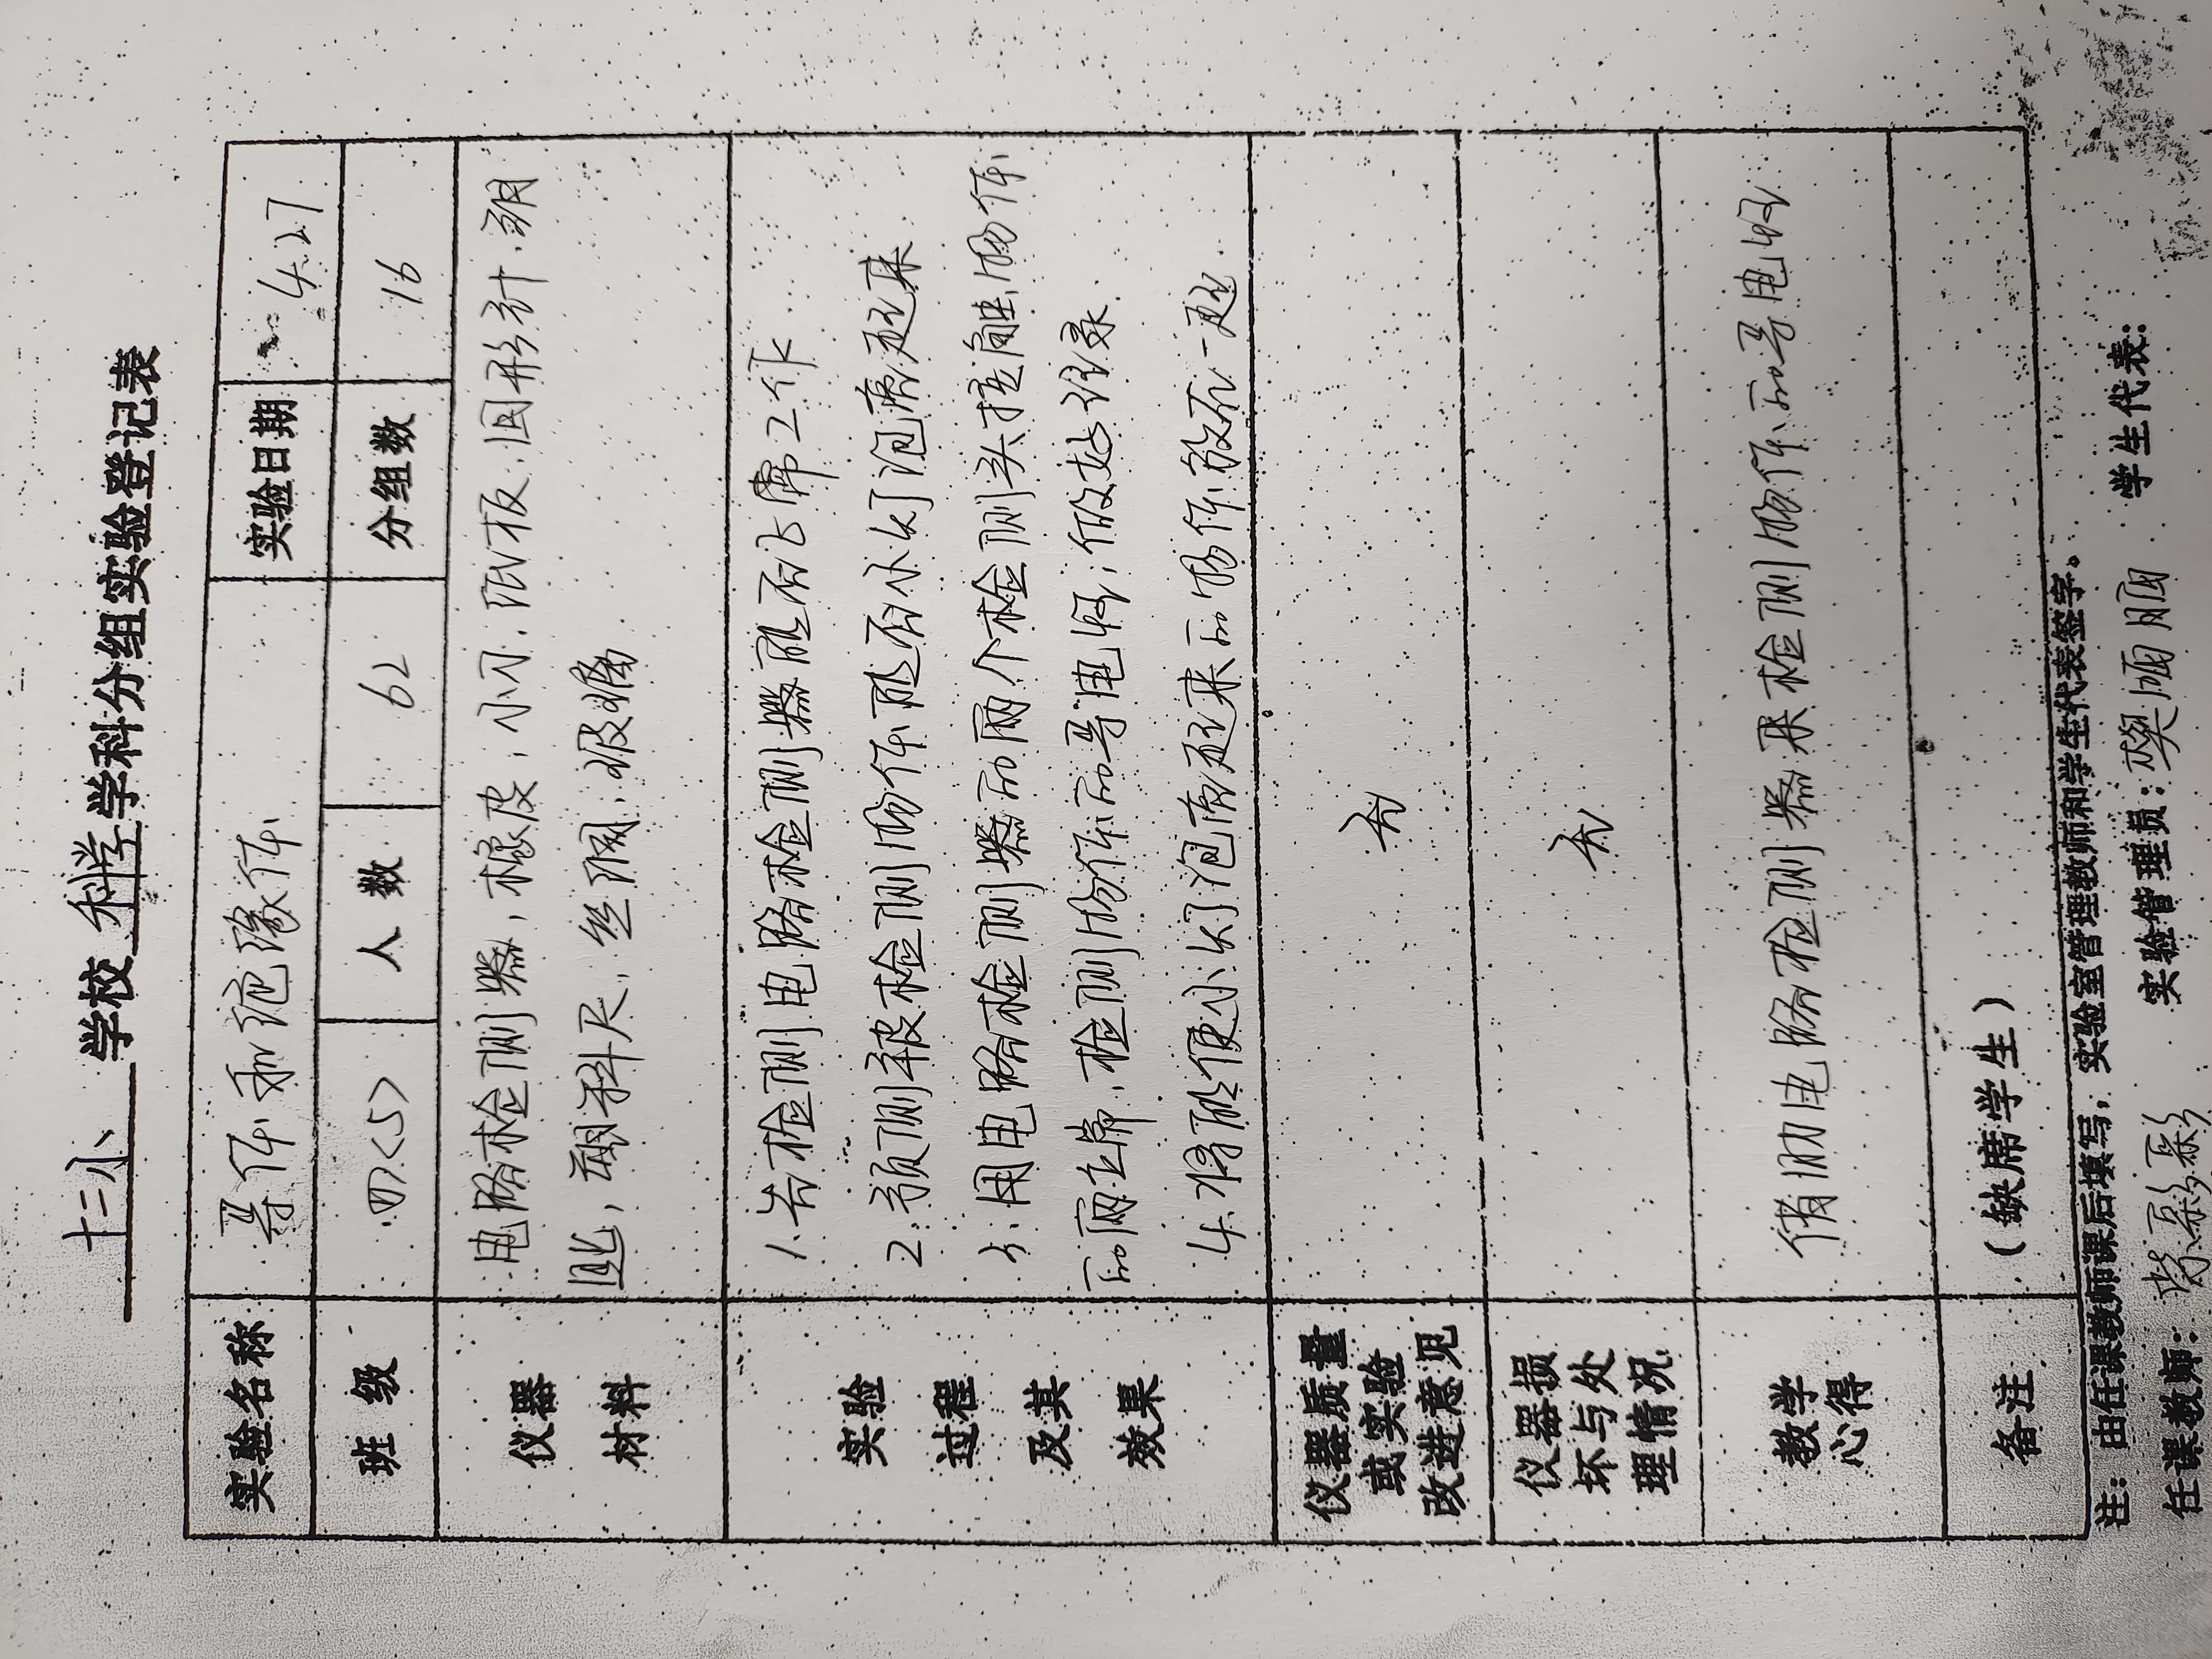 十二小 学校 科学 学科分组实验登记表
实验名称 导体和绝缘体 实验日期 4.27
班级 四<5> 人数 62 分组数 16
仪器材料 电路检测器,橡皮,小刀,瓦板,回形针,钥
匙,塑料尺,丝绸,吸嘴
实验过程及其效果
1.先检测电路检测器能否正常工作
2.预测被检测物体能否小灯泡亮起来
3.用电路检测器的两个检测头接触物体
的两端,检测物体的导电性,做好记录.
4.将能使小灯泡亮起来的物体放在一起
仪器质量或实验改进意见 无
仪器损坏与处理情况 无
教学心得 借助电路检测器来检测物体的导电性
备注 (缺席学生)
注:由任课教师课后填写,实验室管理教师和学生代表签字。
任课教师: 实验管理员:樊丽丽 学生代表: